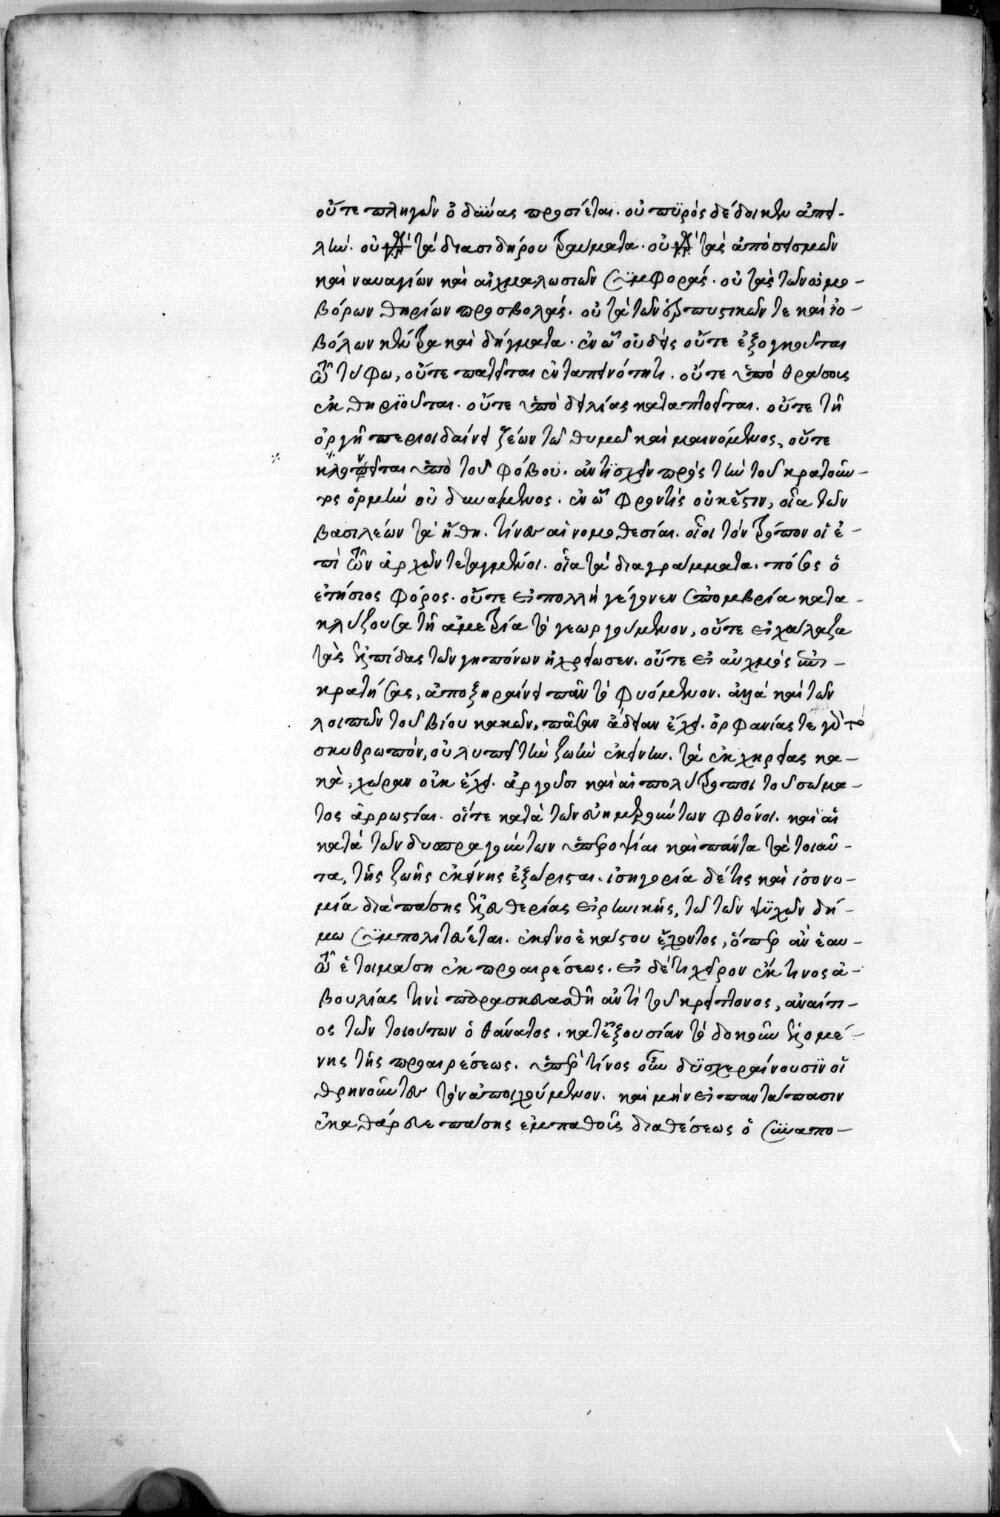 οὔτε πληγῶν ὀδύνας προσίεται. οὐ πυρὸς δέδοικεν ἀπει-
λήν. οὐ τὰ διὰ σιδήρου τραύματα. οὐ τὰς ἀπὸ σεισμῶν
καὶ ναυαγίων καὶ αἰχμαλωσιῶν συμφοράς. οὐ τὰς τῶν ὠμο-
βόρων θηρίων προσβολάς. οὐ τὰ τῶν ἑρπυστικῶν τε καὶ ἰο-
βόλων κέντρα καὶ δήγματα. ἐν ᾧ οὐδεὶς οὔτε ἐξογκοῦται
τῷ τύφῳ, οὔτε πατεῖται ἐν ταπεινότητι. οὔτε ὑπὸ θράσους
ἐκθηριοῦται. οὔτε ὑπὸ δειλίας καταπτοεῖται. οὔτε τῇ
ὀργῇ περιοιδαίνει ζέων τῷ θυμῷ καὶ μαινόμενος, οὔτε
κλονεῖται ὑπὸ τοῦ φόβου. ἀντισχεῖν πρὸς τὴν τοῦ κρατοῦν-
τος ὁρμὴν οὐ δυνάμενος. ἐν ᾧ φροντὶς οὐκ ἔστιν, οἷα τῶν
βασιλέων τὰ ἤθη. τίνες αἱ νομοθεσίαι. οἷοι τὸν τρόπον οἱ ἐ-
πὶ τῶν ἀρχῶν τεταγμένοι. οἷα τὰ διαγράμματα. πόσος ὁ
ἐτήσιος φόρος. οὔτε εἰ πολλὴ γέγονεν ἐπομβρία κατα-
κλύζουσα τῇ ἀμετρίᾳ τὸ γεωργούμενον, οὔτε εἰ χάλαζα
τὰς ἐλπίδας τῶν γηπόνων ἠχρείωσεν. οὔτε εἰ αὐχμὸς ἐπι-
κρατήσας, ἀποξηραίνει πᾶν τὸ φυόμενον. ἀλλὰ καὶ τῶν
λοιπῶν τοῦ βίου κακῶν, πᾶσαν ἄδειαν ἔχει. ὀρφανίας τε γὰρ τὸ
σκυθρωπόν, οὐ λυπεῖ τὴν ζωὴν ἐκείνην. τὰ ἐκ χηρείας κα-
κὰ, χώραν οὐκ ἔχει. ἀργοῦσι καὶ αἱ πολύτροποι τοῦ σώμα-
τος ἀρρωστίαι. οἵτε κατὰ τῶν εὐημερούντων φθόνοι. καὶ αἱ
κατὰ τῶν δυσπραγούντων ὑπεροψίαι καὶ πάντα τὰ τοιαῦ-
τα, τῆς ζωῆς ἐκείνης ἐξώρισται. ἰσηγορία δέ τις καὶ ἰσονο-
μία διὰ πάσης ἐλευθερίας εἰρηνικῆς, τῷ τῶν ψυχῶν δή-
μῳ συμπολιτεύεται. ἐκεῖνο ἑκάστου ἔχοντος, ὅπερ ἂν ἑαυ-
τῷ ἑτοιμάσῃ ἐκ προαιρέσεως. εἰ δέ τι χεῖρον ἔκ τινος ἀ-
βουλίας τινὶ παρασκευασθῇ ἀντὶ τοῦ κρείττονος, ἀναίτι-
ος τῶν τοιούτων ὁ θάνατος. κατ' ἐξουσίαν τὸ δοκοῦν ἑλομέ-
νης τῆς προαιρέσεως. ὑπὲρ τίνος οὖν δυσχεραίνουσιν οἱ
θρηνοῦντες τὸν ἀποιχόμενον. καὶ μὴν εἰ παντάπασιν
ἐκαθάρευε πάσης ἐμπαθοῦς διαθέσεως ὁ συναπο-